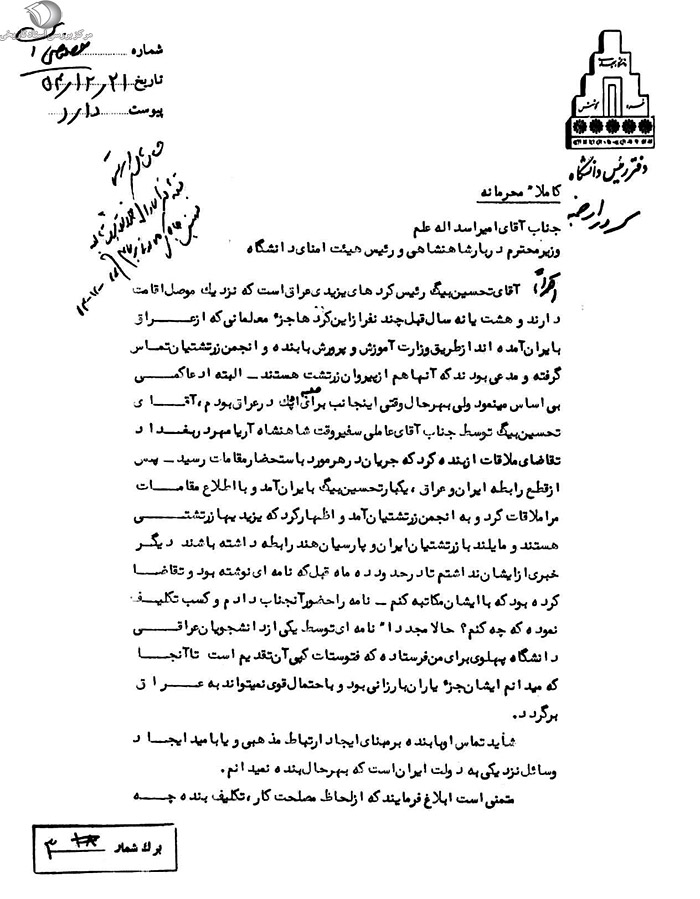 مرکز بررسی اسناد تاریخی
شماره
تاریخ ۲۱ / ۱۲ / ۵۴
پیوست دارد
دفتر رئیس دانشگاه
کاملا" محرمانه
جناب آقای امیر اسداله علم
وزیر محترم دربار شاهنشاهی و رئیس هیئت امنای دانشگاه
آقای تحسین بیگ رئیس کردهای یزیدی عراق است که نزدیک موصل اقامت
دارند و هشت یا نه سال قبل چند نفر از این کردها جزء معلمانی که از عراق
بایران آمده اند از طریق وزارت آموزش و پرورش با بنده و انجمن زرتشتیان تماس
گرفته و مدعی بودند که آنها هم از پیروان زرتشت هستند – البته ادعا کمی
بی اساس مینمود ولی بهر حال وقتی اینجانب برای اوپک در عراق بودم ، آقای
تحسین بیگ توسط جناب آقای عاملی سفیر وقت شاهنشاه آریامهر در بغداد
تقاضای ملاقات از بنده کرد که جریان در هر مورد باستحضار مقامات رسید – پس
از قطع رابطه ایران و عراق ، یکبار تحسین بیگ بایران آمد و با اطلاع مقامات
مرا ملاقات کرد و به انجمن زرتشتیان آمد و اظهار کرد که یزیدیها زرتشتی
هستند و مایلند با زرتشتیان ایران و پارسیان هند رابطه داشته باشند دیگر
خبری از ایشان نداشتم تا در حدود ده ماه قبل که نامه ای نوشته بود و تقاضا
کرده بود که با ایشان مکاتبه کنم – نامه را حضور آنجناب دادم و کسب تکلیف
نموده که چه کنم؟ حالا مجددا" نامه ای توسط یکی از دانشجویان عراقی
دانشگاه پهلوی برای من فرستاده که فتوستات کپی آن تقدیم است تا آنجا
که میدانم ایشان جزء یاران بارزانی بود و باحتمال قوی نمیتواند به عراق
برگردد.
شاید تماس او با بنده بر مبنای ایجاد ارتباط مذهبی و یا بامید ایجاد
وسائل نزدیکی به دولت ایران است که بهر حال بنده نمیدانم.
متمنی است ابلاغ فرمایند که از لحاظ مصلحت کار ، تکلیف بنده چه
برگ شمار ۳